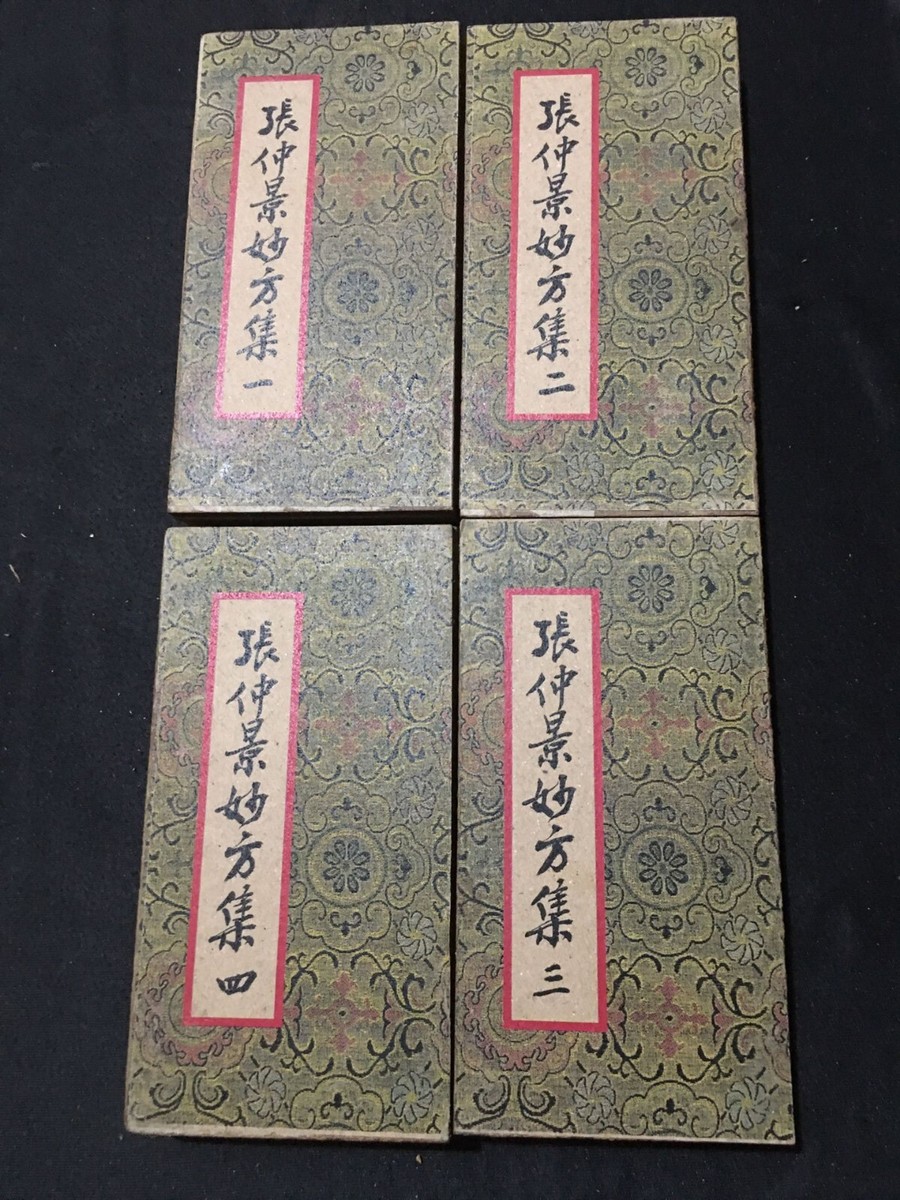 張仲景妙方集一
張仲景妙方集二
張仲景妙方集四
張仲景妙方集三